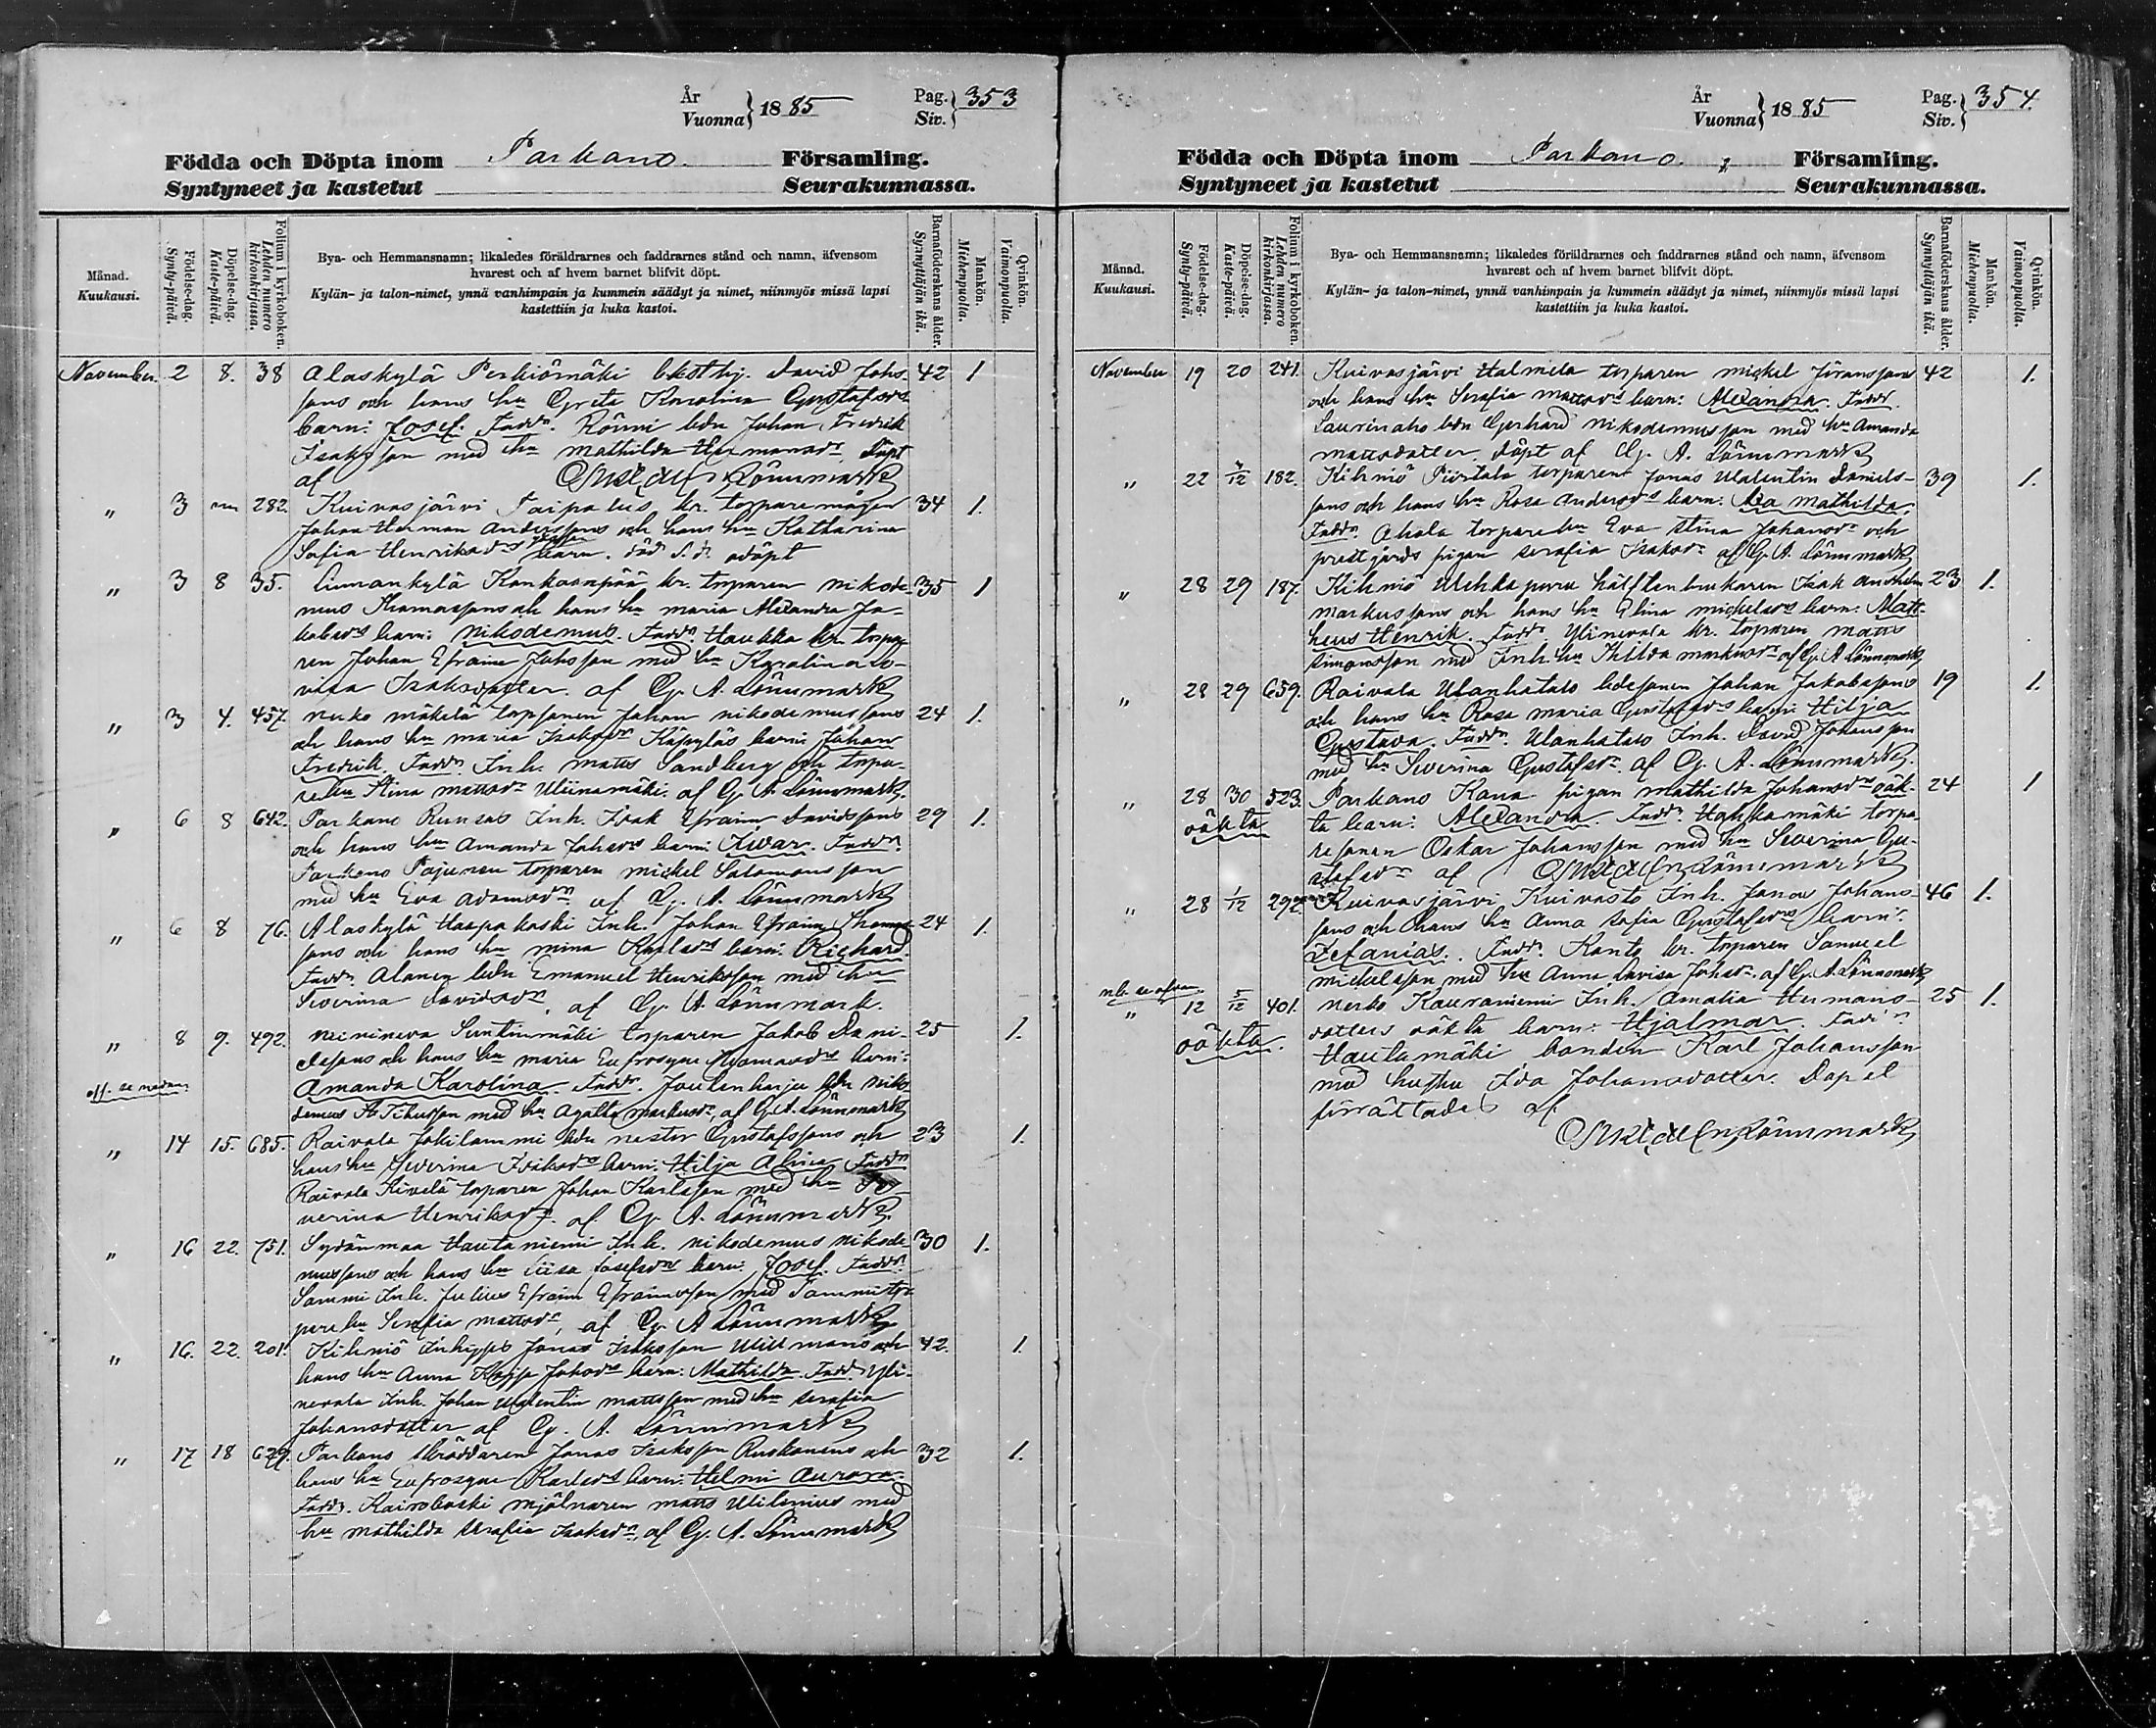 År
Vuonna } 1885
Pag.
Siv. } 353
Födda och Döpta inom Parkano Församling.
Syntyneet ja kastetut Seurakunnassa.
Månad.
Kuukausi.
Födelse-dag.
Synty-päivä.
Döpelse-dag.
Kaste-päivä.
Folium i kyrkoboken.
Lehden numero kirkonkirjassa.
Bya- och Hemmansnamn; likaledes föräldrarnes och faddrarnes stånd och namn, äfvensom
hvarest och af hvem barnet blifvit döpt.
Kylän- ja talon-nimet, ynnä vanhimpain ja kummein säädyt ja nimet, niinmyös missä lapsi
kastettiin ja kuka kastoi.
Barnaföderskans ålder.
Synnyttäjän ikä.
Mankön.
Miehenpuolia.
Qvinkön.
Vaimonpuolia.
November. 2 8. 38 Alaskylä Perkiömäki David Johs- 42 1
sons och hans hu Greta Karolina Gustafsdrs
barn: Josef. Faddr. Rönni bdn Johan Fredrik
Isaksson med hu Mathilda Hermansdr. Döpt
af Lönnmark
" 3 282. Kuivasjärvi Taipalus kr. torparemågen 34 1.
Johan Herman Anderssons och hans hu Katharina
Sofia Henriksdrs barn. död s. d. odöpt
" 3 8 35. Linnankylä Kankaanpää kr. torparen Nikode- 35 1
mus Thomassons och hans hu Maria Alexandra Ja-
kobsdrs barn: Nikodemus. Faddr. Haukka kr. torpa-
ren Johan Efraim Johsson med hu Karolina Lo-
visa Isaksdotter. af G. A. Lönnmark
" 3 4. 457. Nerko Mäkelä torpsonen Johan Nikodemussons 24 1.
och hans hu Maria Isaksdr Käpyläs barn: Johan
Fredrik. Faddr. Inh. Matts Sandberg och torpa-
rehu Stina Mattsdr Uliinamäki. af G. A. Lönnmark
" 6 8 642. Parkano Runsas Inh. Isak Efraim Davidssons 29 1.
och hans hu Amanda Johsdrs barn: Iivar. Faddr.
Parkano Pajunen torparen Mickel Salomonsson
med hu Eva Adamsdr af G. A. Lönnmark
" 6 8 76. Alaskylä Haapakoski Inh. Johan Efraim Thomas- 24 1.
sons och hans hu Mina Karlsdrs barn: Richard.
Faddr. Alanen bdn Emanuel Henriksson med hu
Severina Davidsdr. af G. A. Lönnmark.
" 8 9. 492. Neinineva Suntinmäki torparen Jakob Dani- 25 1.
elssons och hans hu Maria Eufrosyne Adamsdrs barn:
Amanda Karolina. Faddr. Joutenharju bdn Niko-
demus med hu Agatha Markusdr. af G. A. Lönnmark
off. se nedan
" 14 15. 685. Raivala Jokilammi bdn Nestor Gustafssons och 23 1.
hans hu Severina Isaksdrs barn: Hilja Alina. Faddr.
Raivala Kivelä torparen Johan Karlsson med hu Se-
verina Henriksdr. af G. A. Lönnmark
" 16 22. 751. Sydänmaa Hautaniemi Inh. Nikodemus Nikode- 30 1.
mussons och hans hu Liisa Josefsdrs barn: Josef. Faddr.
Sammi Inh. Julius Efraim Efraimsson med Sammi tor-
parehu Serafia Mattsdr, af G. A. Lönnmark
" 16. 22. 201. Kihniö Inhyses Jonas Isaksson Willmans och 42. 1.
hans hu Anna Kajsa Johsdrs barn: Mathilda. Faddr. Yli-
nevala Inh. Johan Walentin Mattsson med hu Serafia
Johansdotter af G. A. Lönnmark
" 17 18 629. Parkano skräddaren Jonas Isaksson Ruskanens och 32 1.
hans hu Eufrosyne Karlsdrs barn: Helmi Aurora.
Faddr. Kairokoski mjölnaren Matts Wilenius med
hu Mathilda Serafia Isaksdr. af G. A. Lönnmark
År
Vuonna } 1885
Pag.
Siv. } 354.
Födda och Döpta inom Parkano Församling.
Syntyneet ja kastetut Seurakunnassa.
Månad.
Kuukausi.
Födelse-dag.
Synty-päivä.
Döpelse-dag.
Kaste-päivä.
Folium i kyrkoboken.
Lehden numero kirkonkirjassa.
Bya- och Hemmansnamn; likaledes föräldrarnes och faddrarnes stånd och namn, äfvensom
hvarest och af hvem barnet blifvit döpt.
Kylän- ja talon-nimet, ynnä vanhimpain ja kummein säädyt ja nimet, niinmyös missä lapsi
kastettiin ja kuka kastoi.
Barnaföderskans ålder.
Synnyttäjän ikä.
Mankön.
Miehenpuolia.
Qvinkön.
Vaimonpuolia.
November 19 20 241. Kuivasjärvi Halmela torparen Mickel Göranssons 42 1.
och hans hu Serafia Mattsdrs barn: Alexandra. Faddr.
Laurinaho bdn Gerhard Nikodemusson med hu Amanda
Mattsdotter, döpt af G. A. Lönnmark
" 22 4/12 182. Kihniö Piirtala torparens Jonas Walentin Daniels- 39 1.
sons och hans hu Rosa Andersdrs barn: Ida Mathilda.
Faddr. Ahola torparehu Eva Stina Johansdr och
prestgårds pigan Serafia Isaksdr. af G. A. Lönnmark
" 28 29 187. Kihniö Uhkapuru hälftenbrukaren Isak Anshelm 23 1.
Markussons och hans hu Elina Mickelsdrs barn: Matt-
heus Henrik. Faddr. Ylinevala kr. torparen Matts
Simonsson med Inh.hu Hilda Markusdr af G. A. Lönnmark
" 28 29 659. Raivala Ulanhatalo bdesonen Johan Jakobssons 19 1.
och hans hu Rosa Maria Gustafsdrs barn: Hilja
Gustava. Faddr. Ulanhatalo Inh. David Johansson
med hu Severina Gustafsdr. af G. A. Lönnmark.
" 28 30 523. Parkano Kana pigan Mathilda Johansdrs oäk- 24 1
oäkta
ta barn: Alexandra. Faddr. Hahkamäki torpa-
resonen Oskar Johansson med hu Severina Gu-
stafsdr af Lönnmark
" 28 1/12 292. Kuivasjärvi Kuivasto Inh. Jonas Johans- 46 1.
sons och hans hu Anna Sofia Gustafsdrs barn:
Zefanias. Faddr. Kanto kr. torparen Samuel
Mickelsson med hu Anna Lovisa Johsdr. af G. A. Lönnmark
nb. se ofvan
" 12 5/12 401. Nerko Kauraniemi Inh. Amalia Hermans- 25 1.
oäkta.
dotters oäkta barn: Hjalmar. Faddr.
Hautamäki bonden Karl Johansson
med hustru Ida Johansdotter. Dopet
förrättades af
Lönnmark